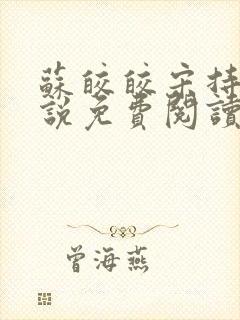 蘇皎皎宋持
説免費閱讀
曾海燕